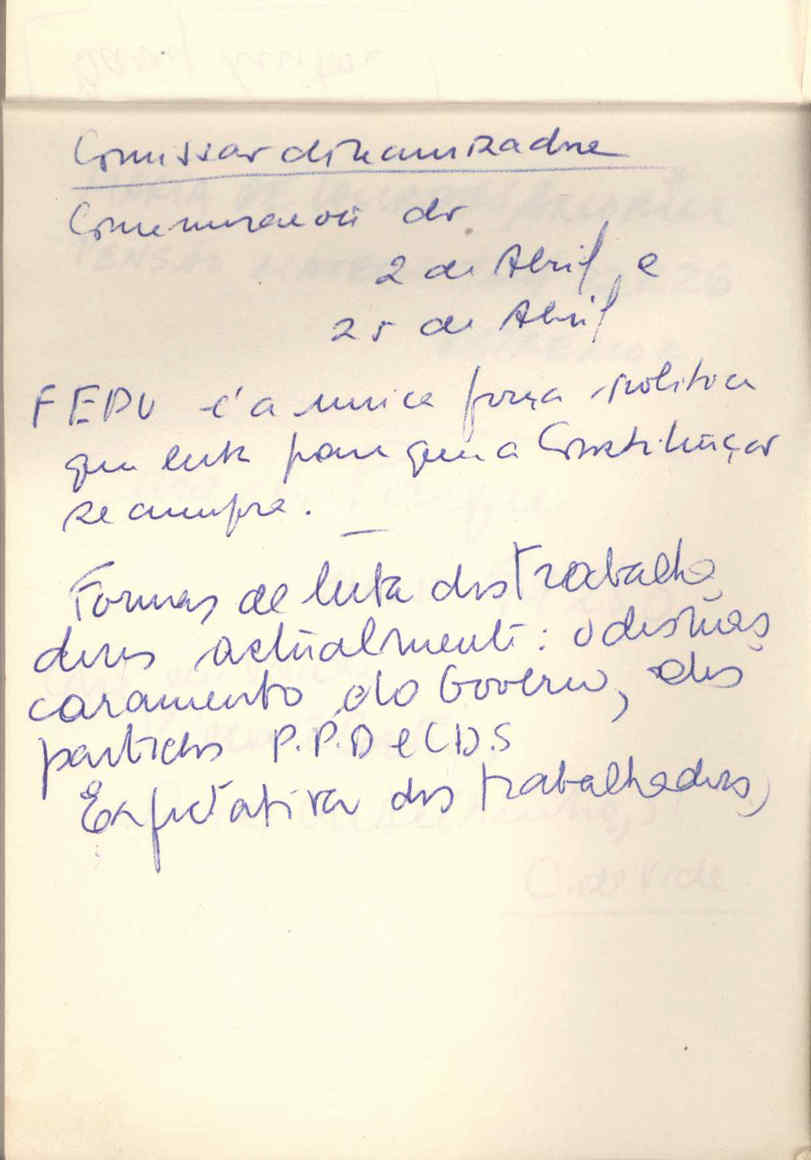 Comissão dinamizadora
Comemoração do
2 de Abril, e
25 de Abril
FEPU é a unica força politica
que luta para que a Constituição
se cumpra.
Formas de luta dos trabalha
dores actualmente: o desmas
caramento do Governo, dos
partidos P.P.D e C.D.S
Expectativa dos trabalhadores,